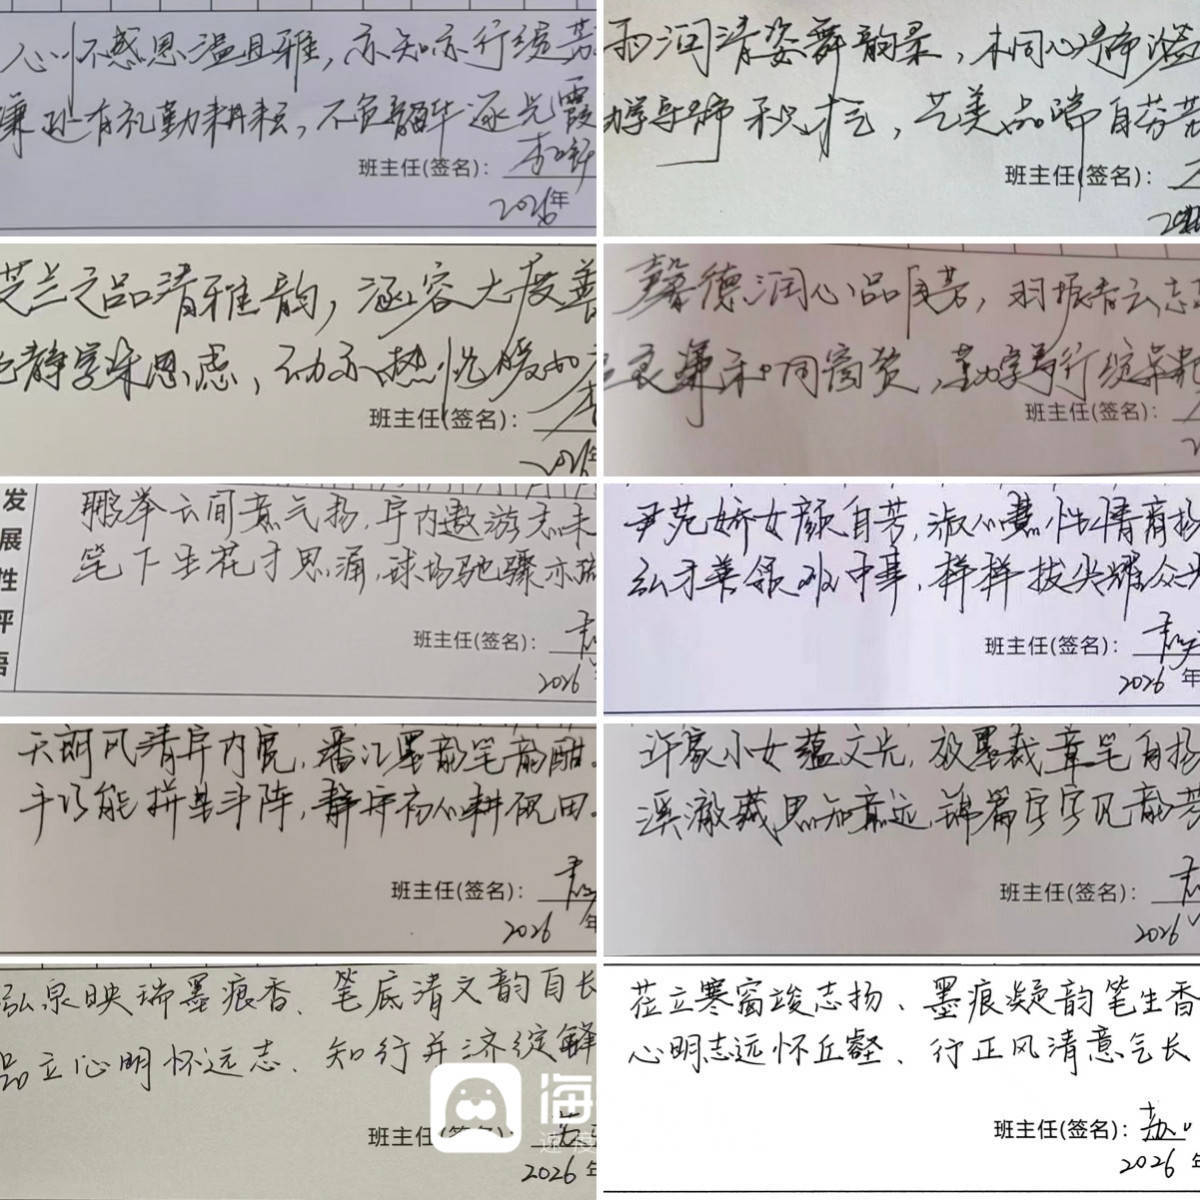 心川不感恩温且雅，亦知亦行绽芳
谦逊有礼勤耕耘，不负韶华逐光霞
班主任(签名)：
2026年
雨润清姿舞韵柔，木同心
学 积才气，艺美品端自芬芳
班主任(签名)：
芝兰之品清雅韵，涵容大度善
静学深思虑，动亦热忱暖如
班主任(签名)：
2026
馨德润心品质芳，羽振青云志
良谦和同窗赞，勤学笃行绽
班主任(签名)：
发展性评语
鹏举云间意气扬，宇内遨游志未
笔下生花才思涌，球场驰骤亦
班主任(签名)：
2026
尹苑娇女颜自芳，淑心慧性情商扬
弘才善领班中事，样样拔尖耀众
班主任(签名)：
2026年
天朗风清宇内宽，潘江墨韵笔韵酣。
千巧能拼基斗阵，静守初心耕砚田。
班主任(签名)：
2026年
许家小女蕴文光，放墨裁章笔自扬
溪澈藏思知意远，锦篇字字见韵芳
班主任(签名)：
2026
泓泉映瑞墨痕香、笔底清文韵自长
品立心明怀远志、知行并济绽锋
班主任(签名)：
2026年
海
速度
莅立寒窗竣志扬、墨痕凝韵笔生香
心明志远怀丘壑、行正风清意气长
班主任(签名)：
2026年